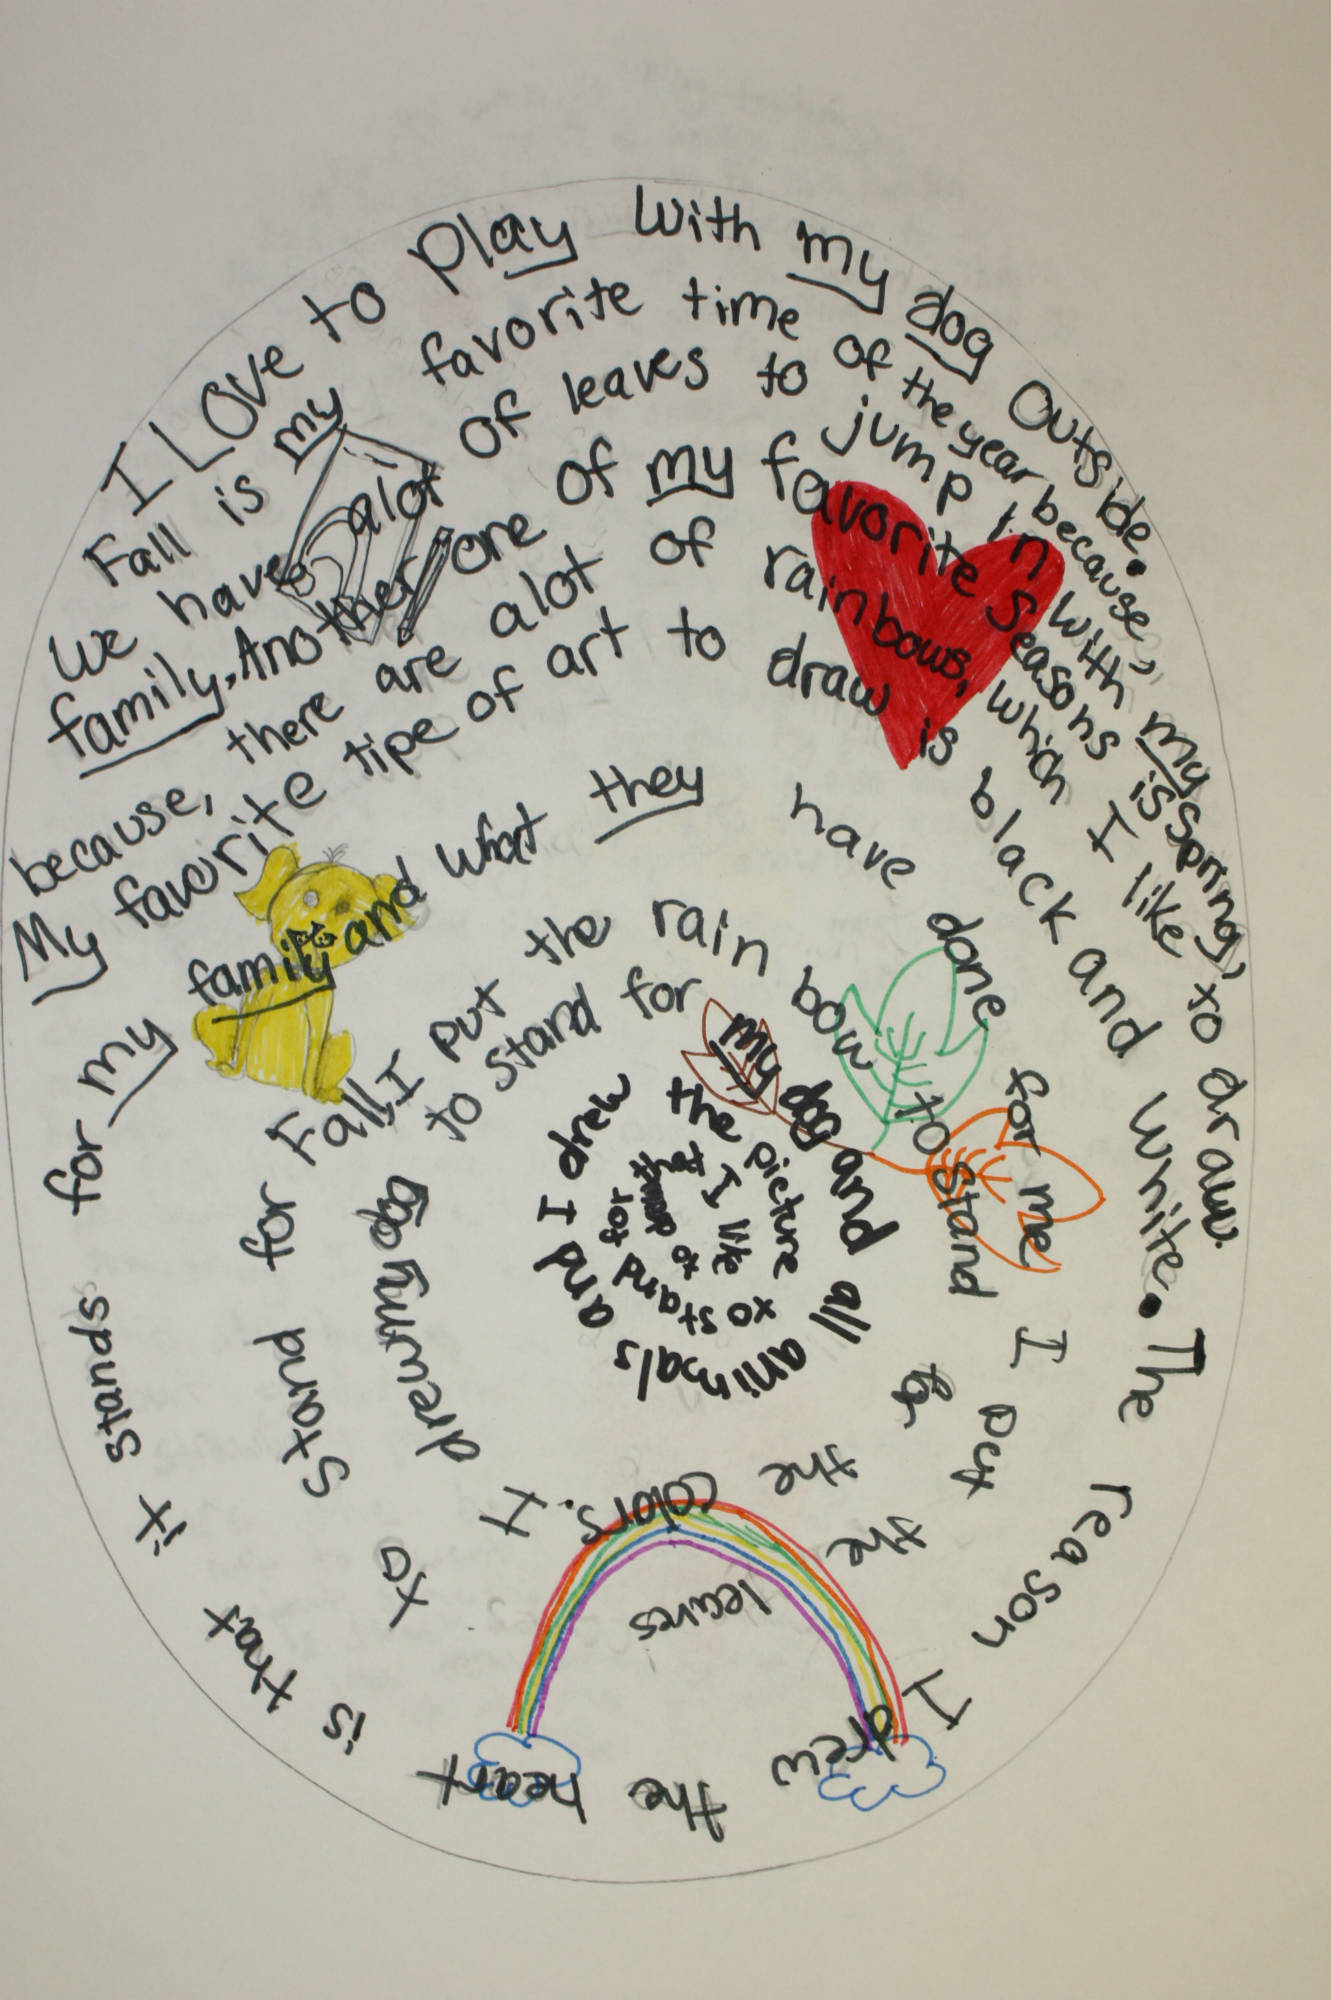 I LOve to play with my dog Outside.
Fall is my favorite time of the year because,
We have alot of leaves to jump in with my
family. Another one of my favorite Seasons is spring,
because, there are alot of rainbows, which I like to draw.
My favorite tipe of art to draw is black and white. The reason I drew the heart is that it stands for my
family and what they have done for me I put the leaves to Stand for
Fall, I put the rain bow to stand for the colors. I drew my dog
to stand for my dog and all animals and I drew
the picture to stand for
that I like to draw